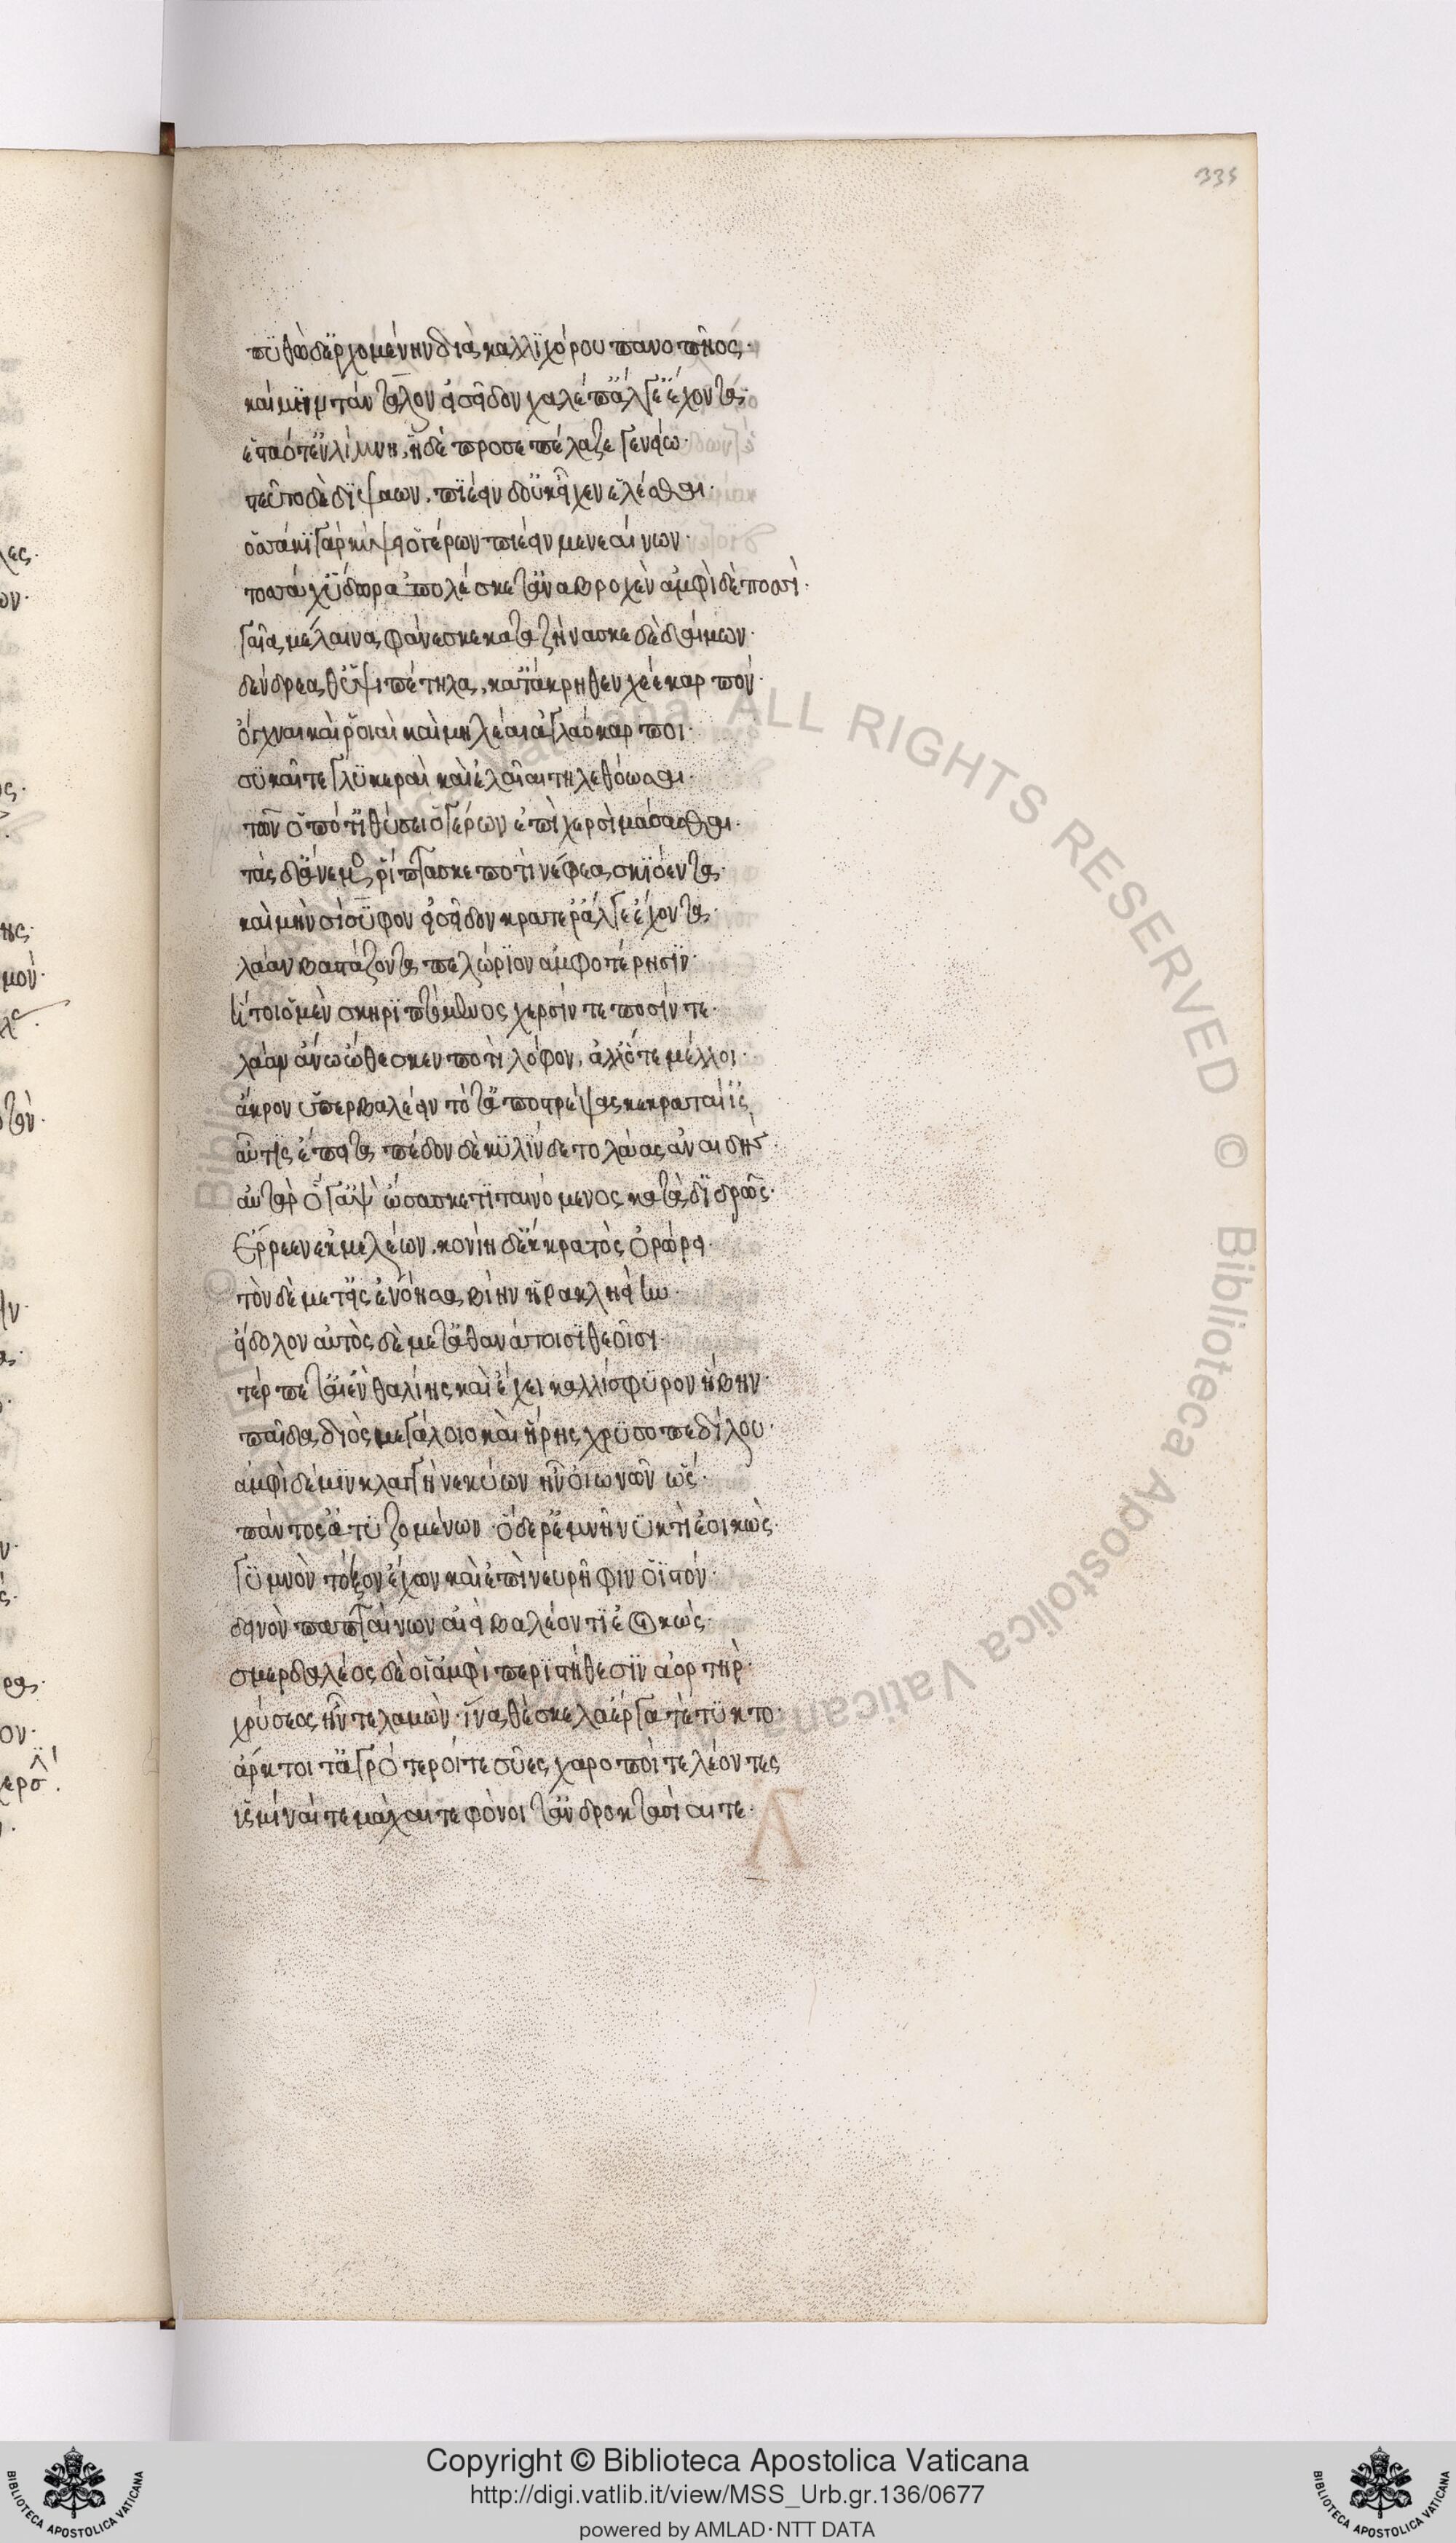 335
πυθώδ' ἐρχομένην διὰ καλλιχόρου πανοπῆος·
καὶ μὴν τάνταλον εἰσεῖδον χαλέπ' ἄλγε' ἔχοντα·
ἑσταότ' ἐν λίμνη, ἡ δὲ προσεπέλαζε γενείω·
στεῦτο δὲ διψάων, πιέειν δ' οὐκ εἶχεν ἑλέσθαι·
ὁσσάκι γὰρ κύψει' ὁ γέρων πιέειν μενεαίνων·
τοσσάχ' ὕδωρ ἀπολέσκετ' ἀναβροχὲν ἀμφὶ δὲ ποσσὶ·
γαῖα μέλαινα φάνεσκε καταζήνασκε δὲ δαίμων·
δένδρεα θ' ὑψιπέτηλα, κατάκρηθεν χέε καρπόν·
ὄγχναι καὶ ῥοιαὶ καὶ μηλέαι ἀγλαόκαρποι·
συκαῖ τε γλυκεραὶ καὶ ἐλαῖαι τηλεθόωσαι·
τῶν ὁπότ' ἰθύσει' ὁ γέρων ἐπὶ χερσὶ μάσασθαι·
τὰς δ' ἄνεμος ῥίπτασκε ποτὶ νέφεα σκιόεντα·
καὶ μὴν σίσυφον εἰσεῖδον κρατερ' ἄλγε' ἔχοντα·
λᾶαν βαστάζοντα πελώριον ἀμφοτέρησιν·
ἤτοι ὁ μὲν σκηριπτόμενος χερσίν τε ποσίν τε·
λᾶαν ἄνω ὤθεσκεν ποτὶ λόφον, ἀλλ' ὅτε μέλλοι·
ἄκρον ὑπερβαλέειν τότ' ἀποστρέψασκε κραταιΐς
αὖτις ἔπειτα πέδονδὲ κυλίνδετο λᾶας ἀναιδής·
αὐτὰρ ὅγ' ἂψ ὤσασκε τιταινόμενος κατὰ δ' ἱδρῶς·
ἔρρεεν ἐκ μελέων, κονίη δ' ἐκ κρατὸς ὀρώρει·
τὸν δὲ μετ' εἰσενόησα βίην ἡρακληείην·
εἴδολον αὐτὸς δὲ μετ' ἀθανάτοισι θεοῖσι·
τέρπεται ἐν θαλίης καὶ ἔχει καλλίσφυρον ἥβην·
παῖδα διὸς μεγάλοιο καὶ ἥρης χρυσοπεδίλου·
ἀμφὶ δέ μιν κλαγγὴ νεκύων ἦν οἰωνῶν ὥς·
πάντοσ' ἀτυζομένων· ὁ δ' ἐρεμνῆ νυκτὶ ἐοικὼς·
γυμνὸν τόξον ἔχων καὶ ἐπὶ νευρῆφιν ὀϊστόν·
δεινὸν παπταίνων αἰεὶ βαλέοντι ἐοικώς·
σμερδαλέος δέ οἱ ἀμφὶ περὶ στήθεσιν ἀορτὴρ·
χρύσεος ἦν τελαμὼν· ἵνα θέσκελα ἔργα τέτυκτο·
ἄρκτοι τ' ἀγρότεροί τε σύες χαροποί τε λέοντες
ὑσμῖναί τε μάχαι τε φόνοι τ' ἀνδροκτασίαι τε·